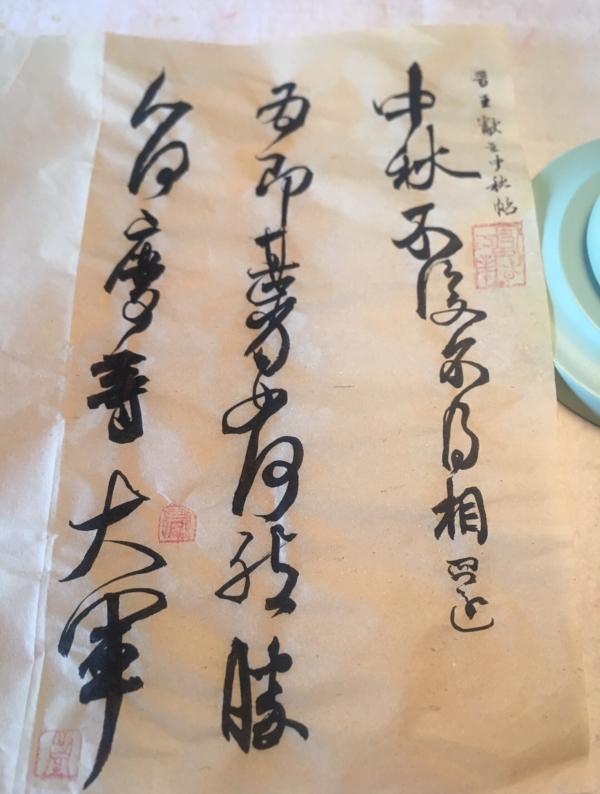 晋王獻之中秋帖
中秋不復不得相還
為即甚省如何然勝
人何慶等大軍